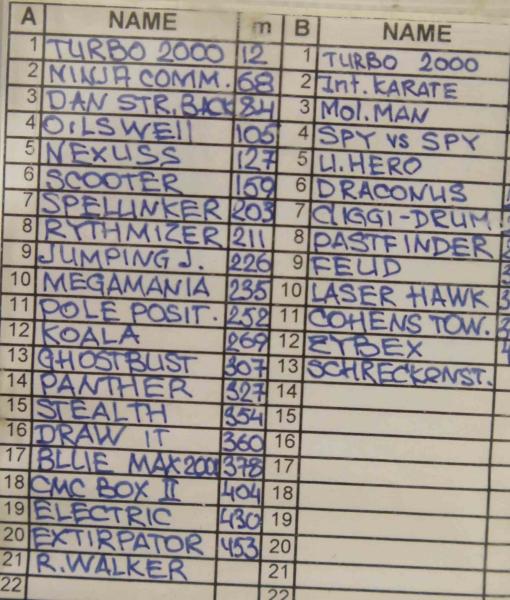 A NAME m B NAME
1 TURBO 2000 12 1 TURBO 2000
2 NINJA COMM. 68 2 Int. KARATE
3 DAN STR. BACK 84 3 Mol. MAN
4 OILSWEll 105 4 SPY vs SPY
5 NEXUSS 127 5 U. HERO
6 SCOOTER 159 6 DRACONUS
7 SPELUNKER 203 7 CLIGGI-DRUM
8 RYTHMIZER 211 8 PASTFINDER
9 JUMPING J. 226 9 FEUD
10 MEGAMANIA 235 10 LASER HAWK
11 POLE POSIT. 252 11 COHENS TOW.
12 KOALA 269 12 ZYBEX
13 GHOSTBUST 307 13 SCHRECKENST.
14 PANTHER 327 14
15 STEALTH 354 15
16 DRAW IT 360 16
17 BLUE MAX 2001 378 17
18 CMC BOX II 404 18
19 ELECTRIC 430 19
20 EXTIRPATOR 453 20
21 R. WALKER 21
22 22